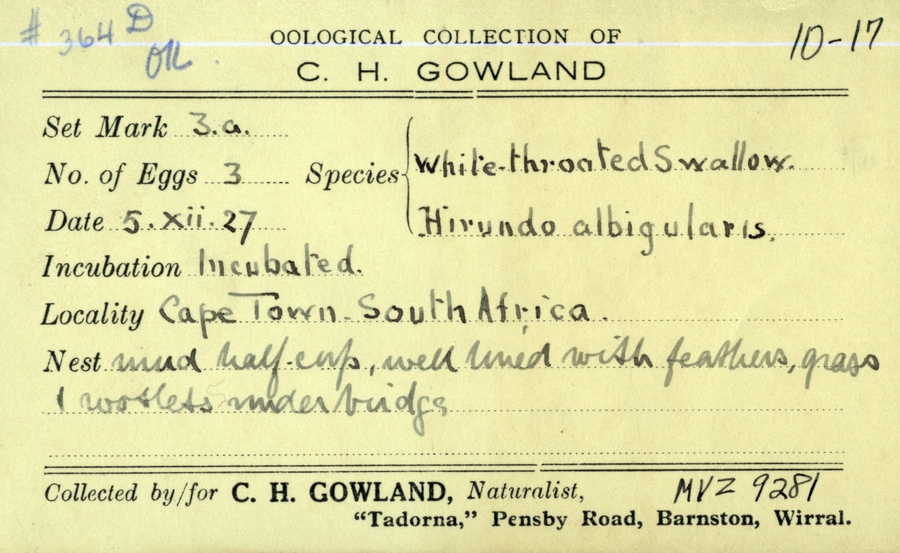 # 364 D
OK.
10-17
OOLOGICAL COLLECTION OF
C. H. GOWLAND
Set Mark 3.a.
No. of Eggs 3 Species White-throated Swallow.
Date 5.xii.27 Hirundo albigularis.
Incubation Incubated.
Locality Cape Town - South Africa.
Nest mud half-cup, well lined with feathers, grass
rootlets under bridge
Collected by/for C. H. GOWLAND, Naturalist, MVZ 9281
"Tadorna," Pensby Road, Barnston, Wirral.